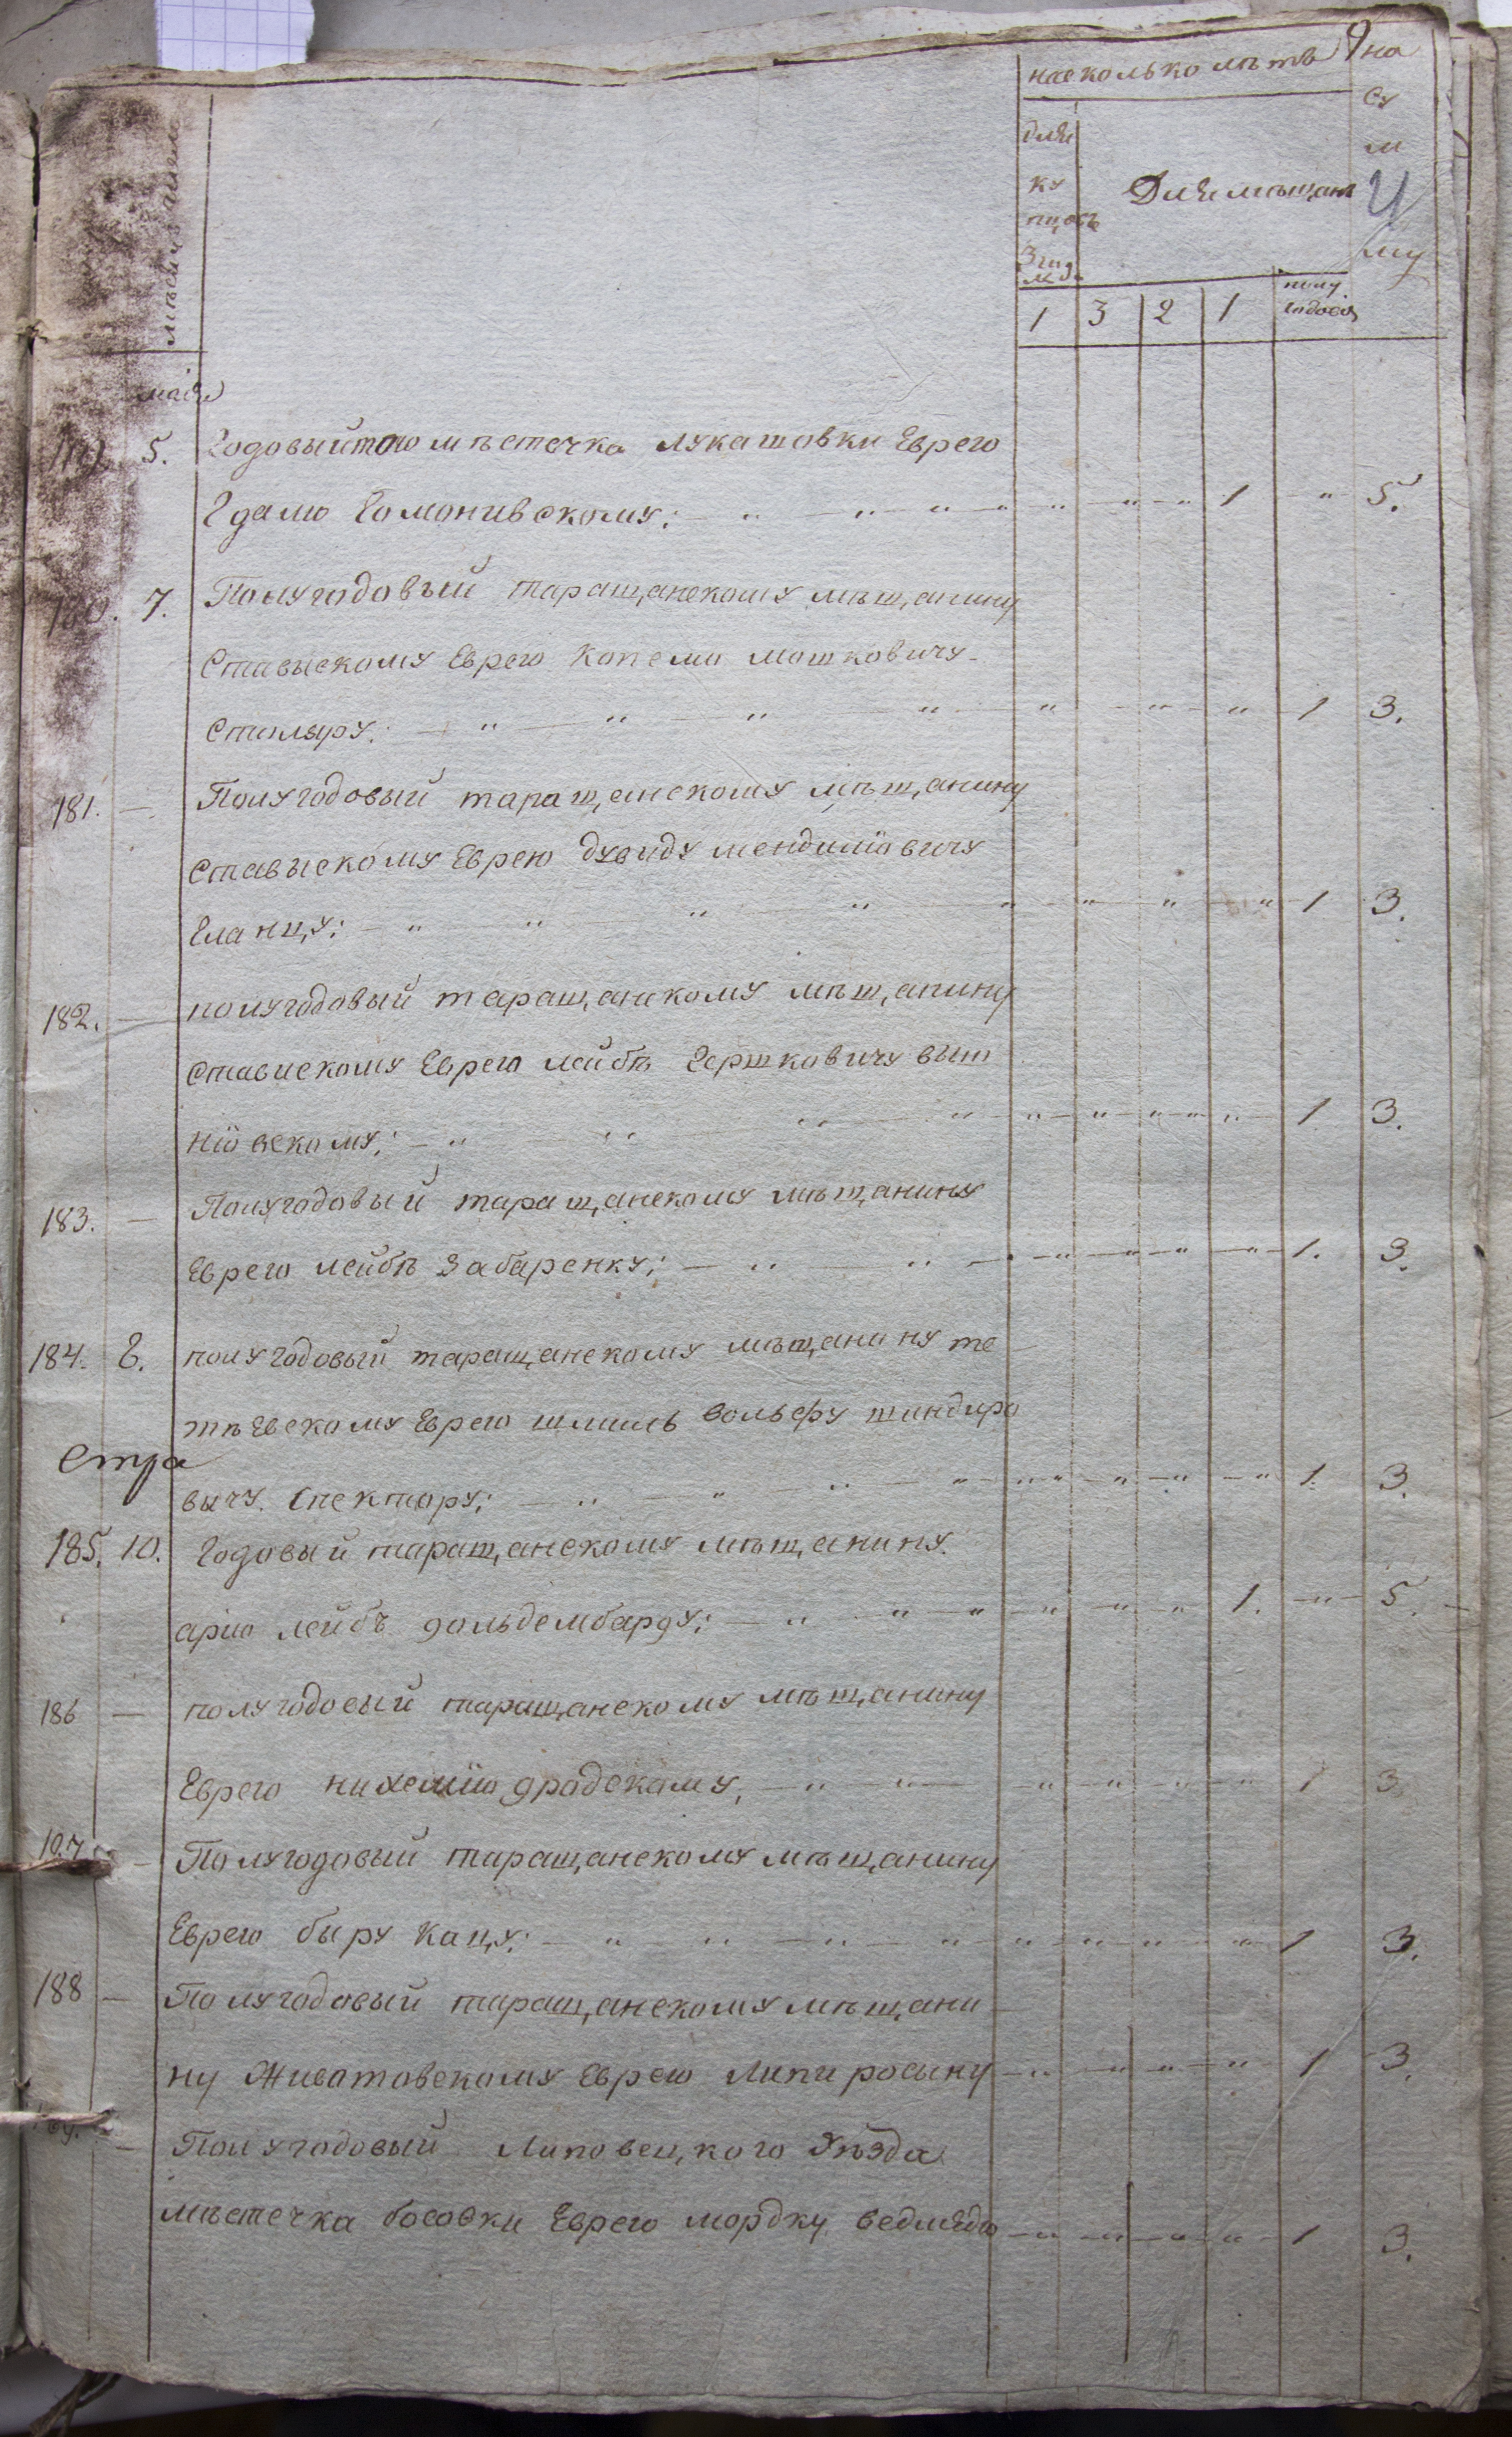 на сколько лѣтъ
9
на
су
м
му
для
ку
пцовъ
Для мѣщанъ
1 3 2 1 полу годовой
маія
5. Годовый того мѣстечка лукашовки Еврею
Гдалю Гомонивскому: — " — " " " " — " — " 1 — " 5.
180. 7. Полугодовый таращанскому мѣщанину
Ставыскому Еврею Копелю мошковичу
Столяру: — " — " — " — " — " — " — " 1 3.
181. — Полугодовый таращанскому мѣщанину
Ставыскому Еврею дувиду мендиліовичу
Гланцу: — " " — " — " — " — " — " — " 1 3.
182. — полугодовый таращанскому мѣщанину
Ставискому Еврею лейбѣ Гершковичу выш
ніовскому: — " " " — " — " — " — " — " 1 3.
183. — Полугодовый таращанскому мѣщанину
Еврею лейбѣ Забаренку: — " " — " — " — " — " 1. 3.
184. 8. полугодовый таращанскому мѣщанину те
тѣевскому Еврею шмиль вольфу шиндиро
Стра
вычу Спектору: — " — " " — " — " — " — " 1. 3.
185. 10. Годовый таращанскому мѣщанину
арио лейбѣ гольдембаргу: — " " — " — " — " — " 1. — " 5.
186 — полугодовый таращанскому мѣщанину
Еврею нихеміо градскому: — " — " — " — " — " — " 1 3
187 — Полугодовый таращанскому мѣщанину
Еврею быру Кацу: — " " — " — " — " — " — " 1 3.
188 — Полугодовый таращанскому мѣщани
ну Животовскому Еврею Липи росыну — " — " — " — " 1 3.
— Полугодовый Липовецкого Уѣзда
мѣстечка босовки Еврею мордку ведмедю — " — " — " — " 1 3.